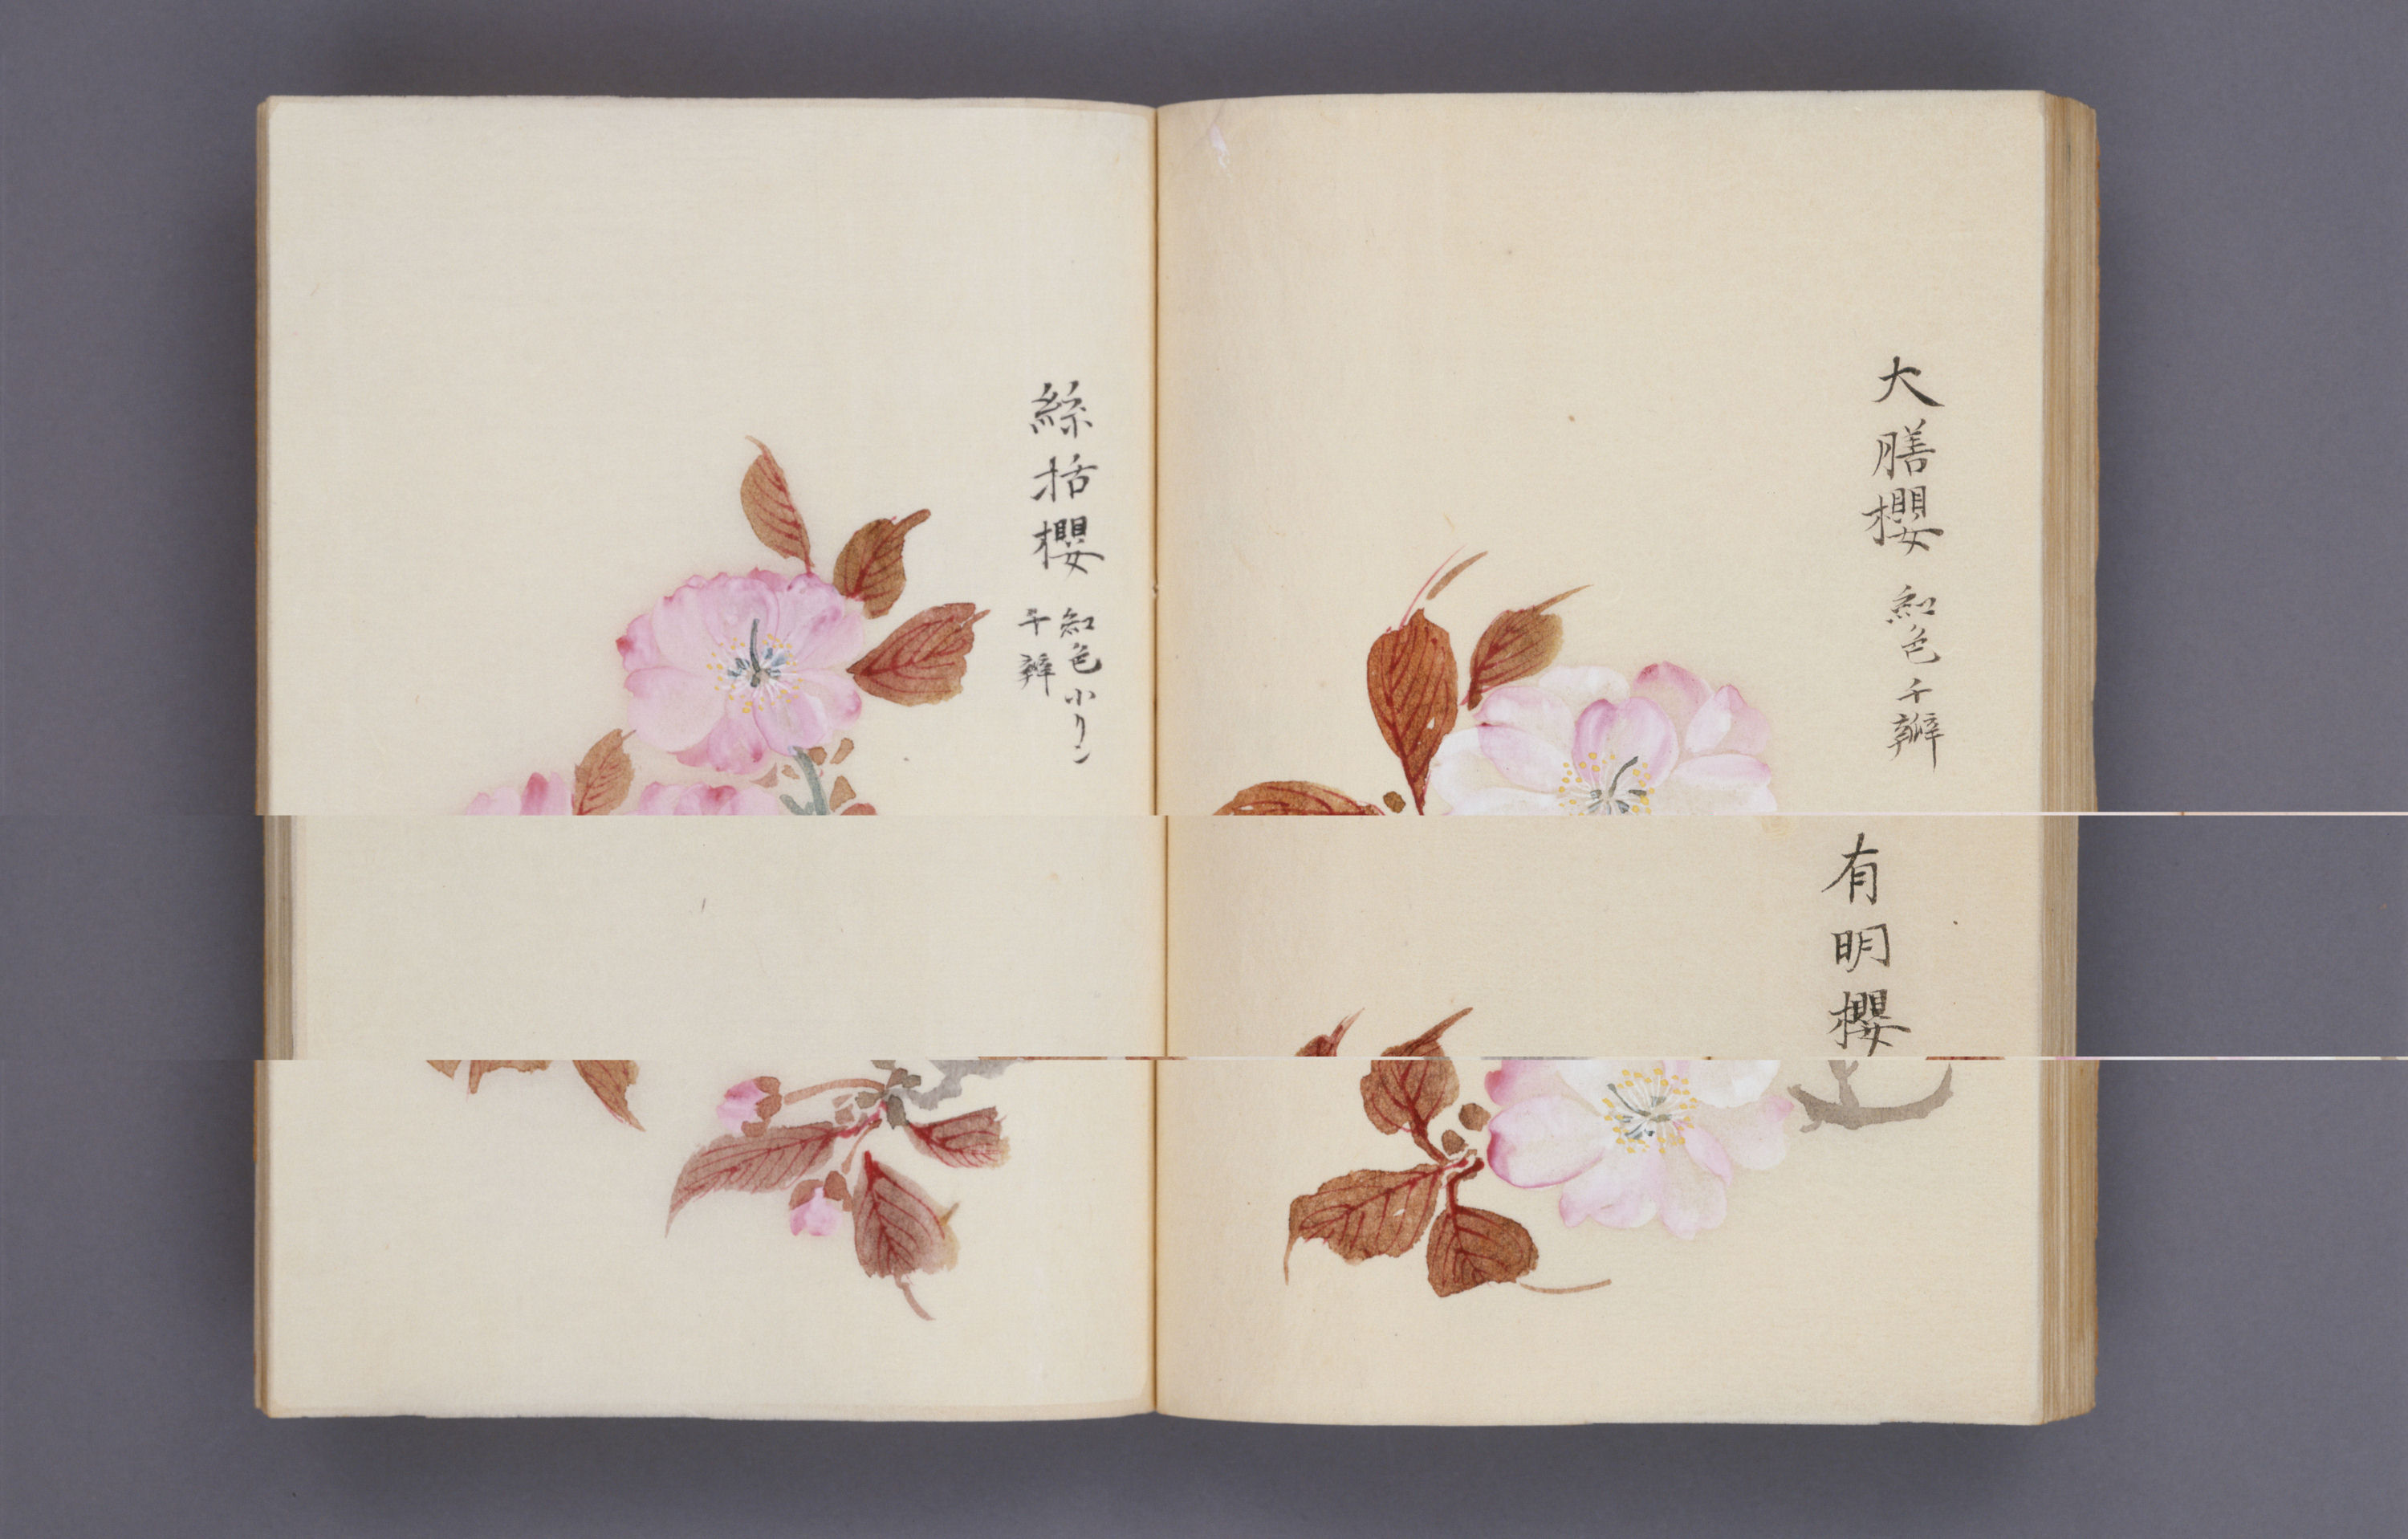 大膳櫻 紅色千瓣
有明櫻
絲括櫻 紅色小リン
千瓣